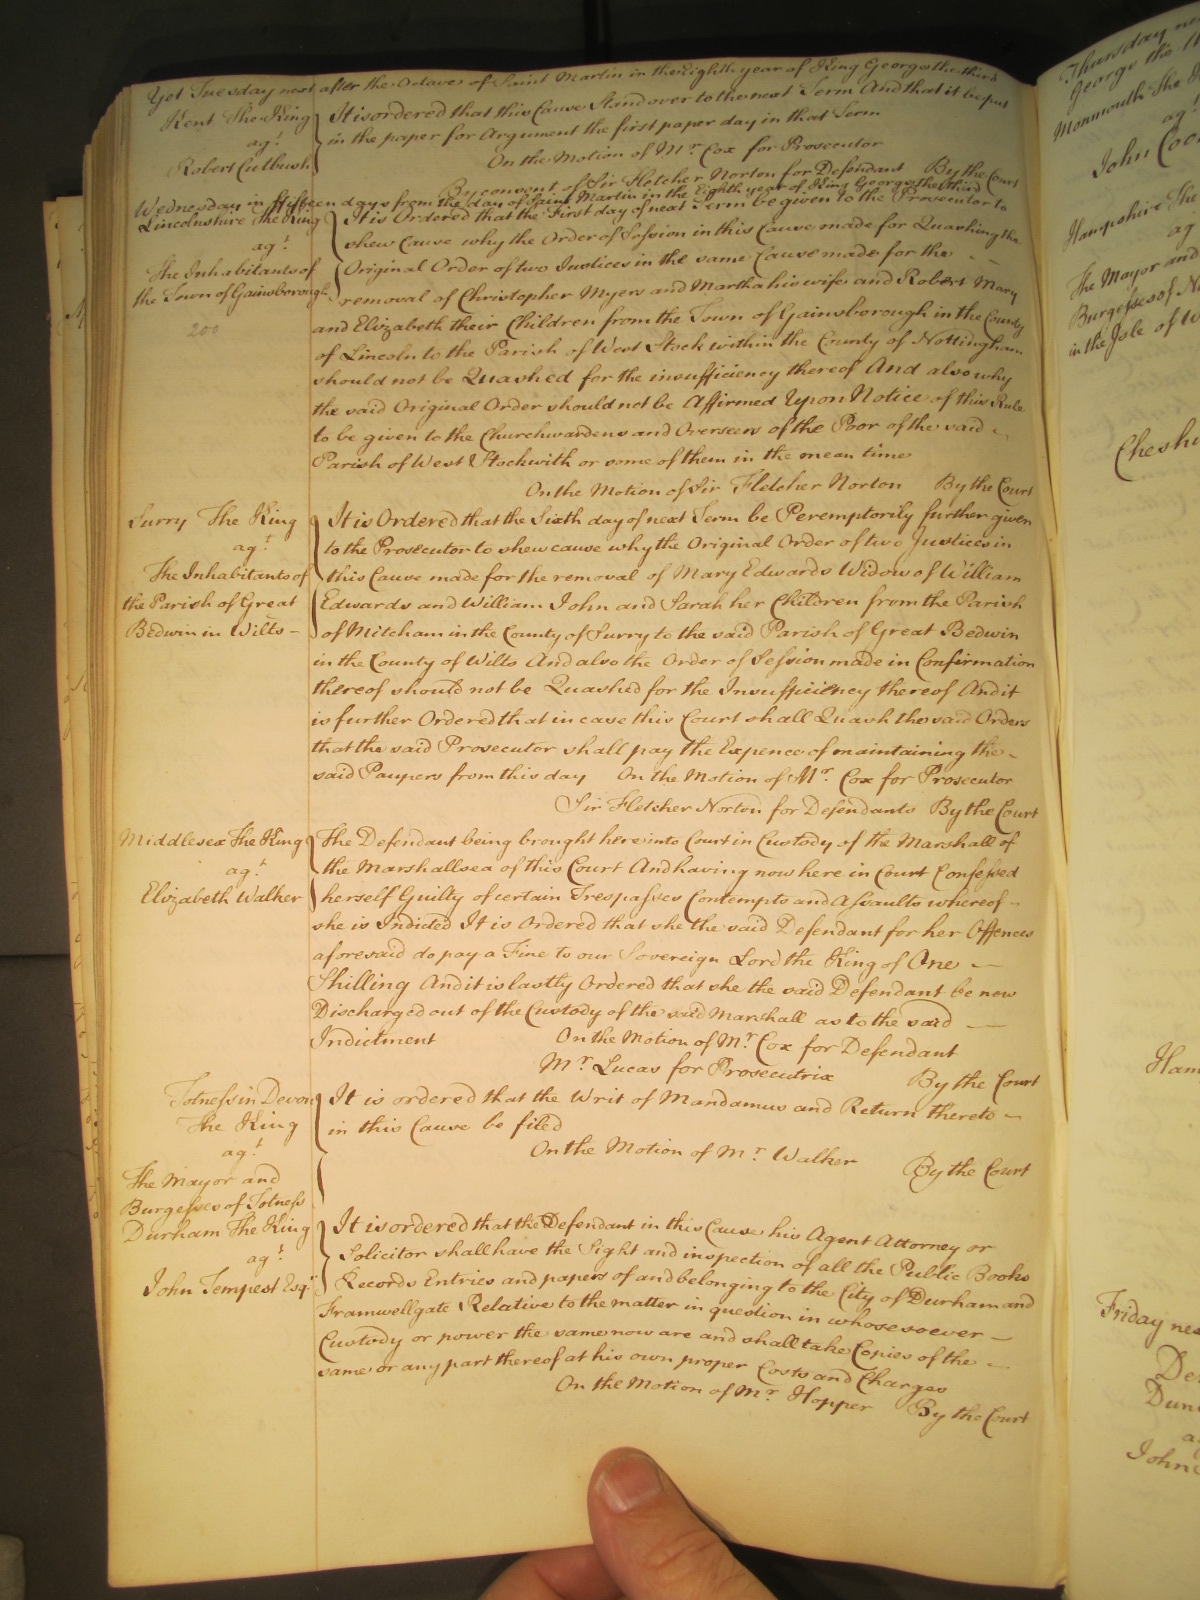 Yet Tuesday next after the Octave of Saint Martin in the Eighth year of King George the third
Kent The King
agt
Robert Culbush
It is ordered that this Cause Stand over to the next Term And that it be put
in the paper for Argument the first paper day in that Term
On the Motion of Mr Cox for Prosecutor
By consent of Sir Fletcher Norton for Defendant By the Court
Wednesday in fifteen days from the day of Saint Martin in the Eighth year of King George the third
Lincolnshire The King
agt
The Inhabitants of
the Town of Gainsborough
200
It is Ordered that the First day of next Term be given to the Prosecutor to
shew Cause why the Order of Session in this Cause made for Quashing the
Original Order of two Justices in the same Cause made for the
removal of Christopher Myers and Martha his wife and Robert Mary
and Elizabeth their Children from the Town of Gainsborough in the County
of Lincoln to the Parish of West Stock within the County of Nottingham
should not be Quashed for the insufficiency thereof And also why
the said Original Order should not be Affirmed Upon Notice of this Rule
to be given to the Churchwardens and Overseers of the Poor of the said
Parish of West Stockwith or some of them in the mean time
On the Motion of Sir Fletcher Norton By the Court
Surry The King
agt
The Inhabitants of
the Parish of Great
Bedwin in Wilts –
It is Ordered that the Sixth day of next Term be Peremptorily further given
to the Prosecutor to shew cause why the Original Order of two Justices in
this Cause made for the removal of Mary Edwards Widow of William
Edwards and William John and Sarah her Children from the Parish
of Mitcham in the County of Surry to the said Parish of Great Bedwin
in the County of Wilts And also the Order of Session made in Confirmation
thereof should not be Quashed for the Insufficiency thereof And it
is further Ordered that in case this Court shall Quash the said Orders
that the said Prosecutor shall pay the Expence of maintaining the
said Paupers from this day On the Motion of Mr. Cox for Prosecutor
Sir Fletcher Norton for Defendants By the Court
Middlesex The King
agt
Elizabeth Walker
The Defendant being brought here into Court in Custody of the Marshall of
the Marshallsea of this Court And having now here in Court Confessed
herself Guilty of certain Trespasses Contempts and Assaults whereof
she is Indicted It is Ordered that she the said Defendant for her Offences
aforesaid do pay a Fine to our Sovereign Lord the King of One
Shilling And it is lastly Ordered that she the said Defendant be now
Discharged out of the Custody of the said Marshall as to the said
Indictment On the Motion of Mr Cox for Defendant
Mr Lucas for Prosecutrix By the Court
Totness in Devon
The King
agt
The Mayor and
Burgesses of Totness
It is ordered that the Writ of Mandamus and Return thereto
in this Cause be filed
On the Motion of Mr Walker By the Court
Durham The King
agt
John Tempest Esqr
It is ordered that the Defendant in this Cause his Agent Attorney or
Solicitor shall have the Sight and inspection of all the Public Books
Records Entries and papers of and belonging to the City of Durham and
Framwellgate Relative to the matter in question in whosesoever
Custody or power the same now are and shall take Copies of the
same or any part thereof at his own proper Costs and Charges
On the Motion of Mr Hopper By the Court
Thursday
George the
Monmouth The
agt
John
Hampshire The
ag
The Mayor and
Burgesses of
in the Isle of
Friday
John